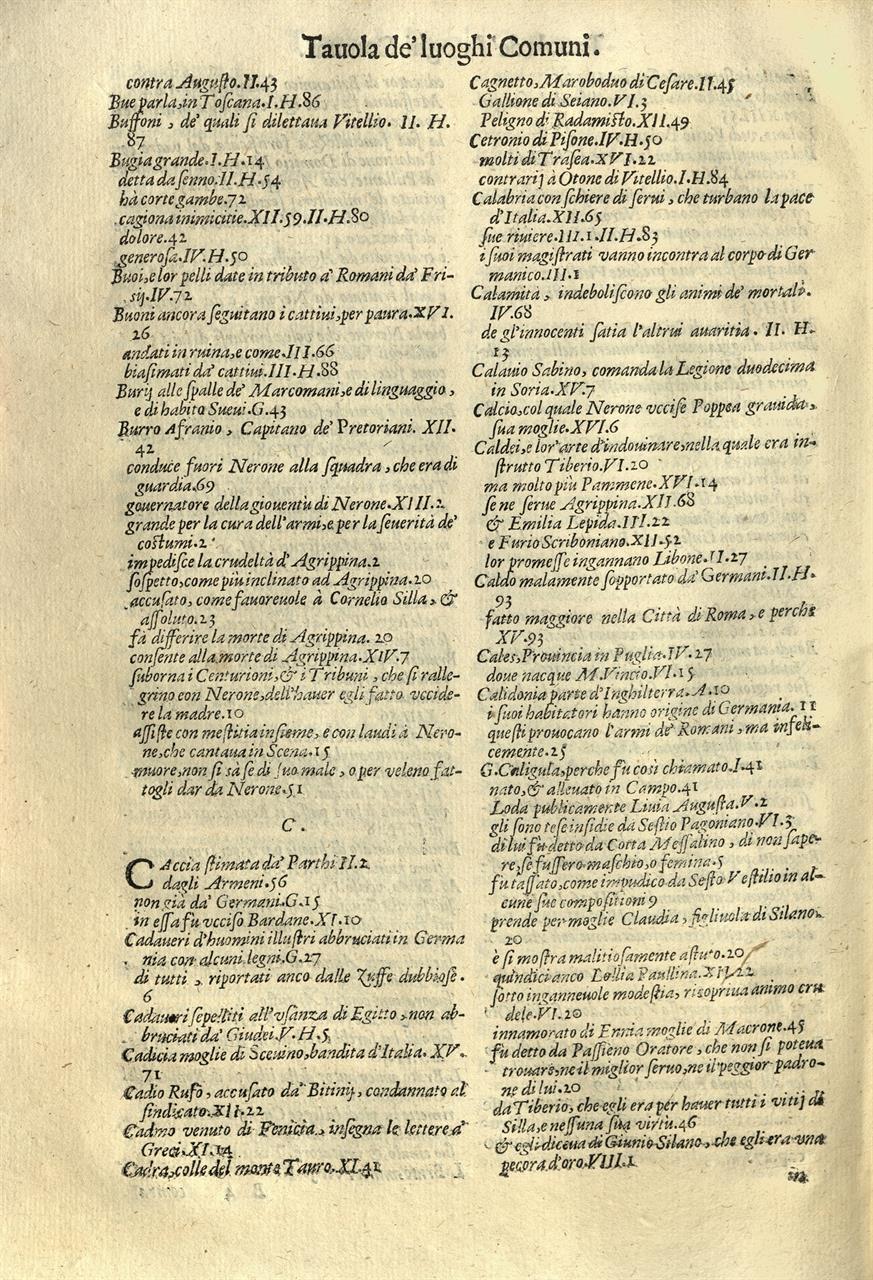 Tauola de' luoghi Comuni.
contra Augusto.II.43
Bue parla, in Toscana.I.H.86
Buffoni, de' quali si dilettaua Vitellio. II. H.
87
Bugia grande.I.H.14
detta da senno.II.H.54
hà corte gambe.72
cagiona inimicitie.XII.59.II.H.80
dolore.42
generosa.IV.H.50
Buoi, e lor pelli date in tributo a' Romani da' Fri-
sij.IV.72
Buoni ancora seguitano i cattiui, per paura.XVI.
26
andati in ruina, e come.III.66
biasimati da' cattiui.III.H.88
Burij alle spalle de' Marcomani, e di linguaggio,
e di habito Sueui.G.43
Burro Afranio, Capitano de' Pretoriani. XII.
42
conduce fuori Nerone alla squadra, che era di
guardia.69
gouernatore della giouentù di Nerone.XIII.2
grande per la cura dell'armi, e per la seuerità de'
costumi.2
impedisce la crudeltà d'Agrippina.2
sospetto, come più inclinato ad Agrippina.20
accusato, come fauoreuole à Cornelio Silla, &
assoluto.23
fà differire la morte di Agrippina. 20
consente alla morte di Agrippina.XIV.7
suborna i Centurioni, & i Tribuni, che si ralle-
grino con Nerone, dell'hauer egli fatto vccide-
re la madre.10
assiste con mestitia insieme, e con laudi à Nero-
ne, che cantaua in Scena.15
muore, non si sà se di suo male, o per veleno fat-
togli dar da Nerone.51
C.
CAccia stimata da' Parthi II.2
dagli Armeni.56
non già da' Germani.G.15
in essa fu vcciso Bardane.XI.10
Cadaueri d'huomini illustri abbruciati in Germa
nia con alcuni legni.G.27
di tutti, riportati anco dalle Zuffe dubbiose.
6
Cadaueri sepelliti all'vsanza di Egitto, non ab-
bruciati da' Giudei.V.H.5
Cadicia moglie di Sceuino, bandita d'Italia. XV.
71
Cadio Rufo, accusato da' Bitinij, condannato al
sindicato.XII.22
Cadmo venuto di Fenicia, insegna le lettere a'
Greci.XI.14
Cadra, colle del monte Tauro.XI.41
Cagnetto, Maroboduo di Cesare.II.45
Gallione di Seiano.VI.3
Peligno di Radamisto.XII.49
Cetronio di Pisone.IV.H.50
molti di Trasea.XVI.22
contrarij à Otone di Vitellio.I.H.84
Calabria con schiere di serui, che turbano la pace
d'Italia.XII.65
sue riuiere.III.1.II.H.83
i suoi magistrati vanno incontra al corpo di Ger
manico.III.1
Calamità, indeboliscono gli animi de' mortali.
IV.68
de gl'innocenti satia l'altrui auaritia. II. H.
13
Calauio Sabino, comanda la Legione duodecima
in Soria.XV.7
Calcio, col quale Nerone vccise Poppea grauida,
sua moglie.XVI.6
Caldei, e lor'arte d'indouinare, nella quale era in-
strutto Tiberio.VI.20
ma molto più Pammene.XVI.14
se ne serue Agrippina.XII.68
& Emilia Lepida.III.22
e Furio Scriboniano.XII.52
lor promesse ingannano Libone.II.27
Caldo malamente sopportato da' Germani.II.H.
93
fatto maggiore nella Città di Roma, e perche
XV.93
Cales, Prouincia in Puglia.IV.27
doue nacque M.Vincio.VI.15
Calidonia parte d'Inghilterra.A.10
i suoi habitatori hanno origine di Germania. 11
questi prouocano l'armi de' Romani, ma infeli-
cemente.25
G.Caligula, perche fù così chiamato.I.41
nato, & alleuato in Campo.41
Loda publicamente Liuia Augusta.V.2
gli sono tese insidie da Sestio Pagoniano.VI.3
di lui fu detto da Cotta Messalino, di non sape-
re, se fussero maschio, o femina.5
fu tassato, come impudico da Sesto Vestilio in al-
cune sue compositioni 9
prende per moglie Claudia, figliuola di Silano.
20
è si mostra malitiosamente astuto.20
quindici anco Lollia Paullina.XII.22
sotto ingannevole modestia, ricopriua animo cru
dele.VI.20
innamorato di Ennia moglie di Macrone.45
fu detto da Passieno Oratore, che non si poteua
trouare, ne il miglior seruo, ne il peggior padro-
ne di lui.20
da Tiberio, che egli era per hauer tutti i vitij di
Silla, e nessuna sua virtù.46
& egli diceua di Giunio Silano, che egli era vna
pecora d'oro.VIII.1